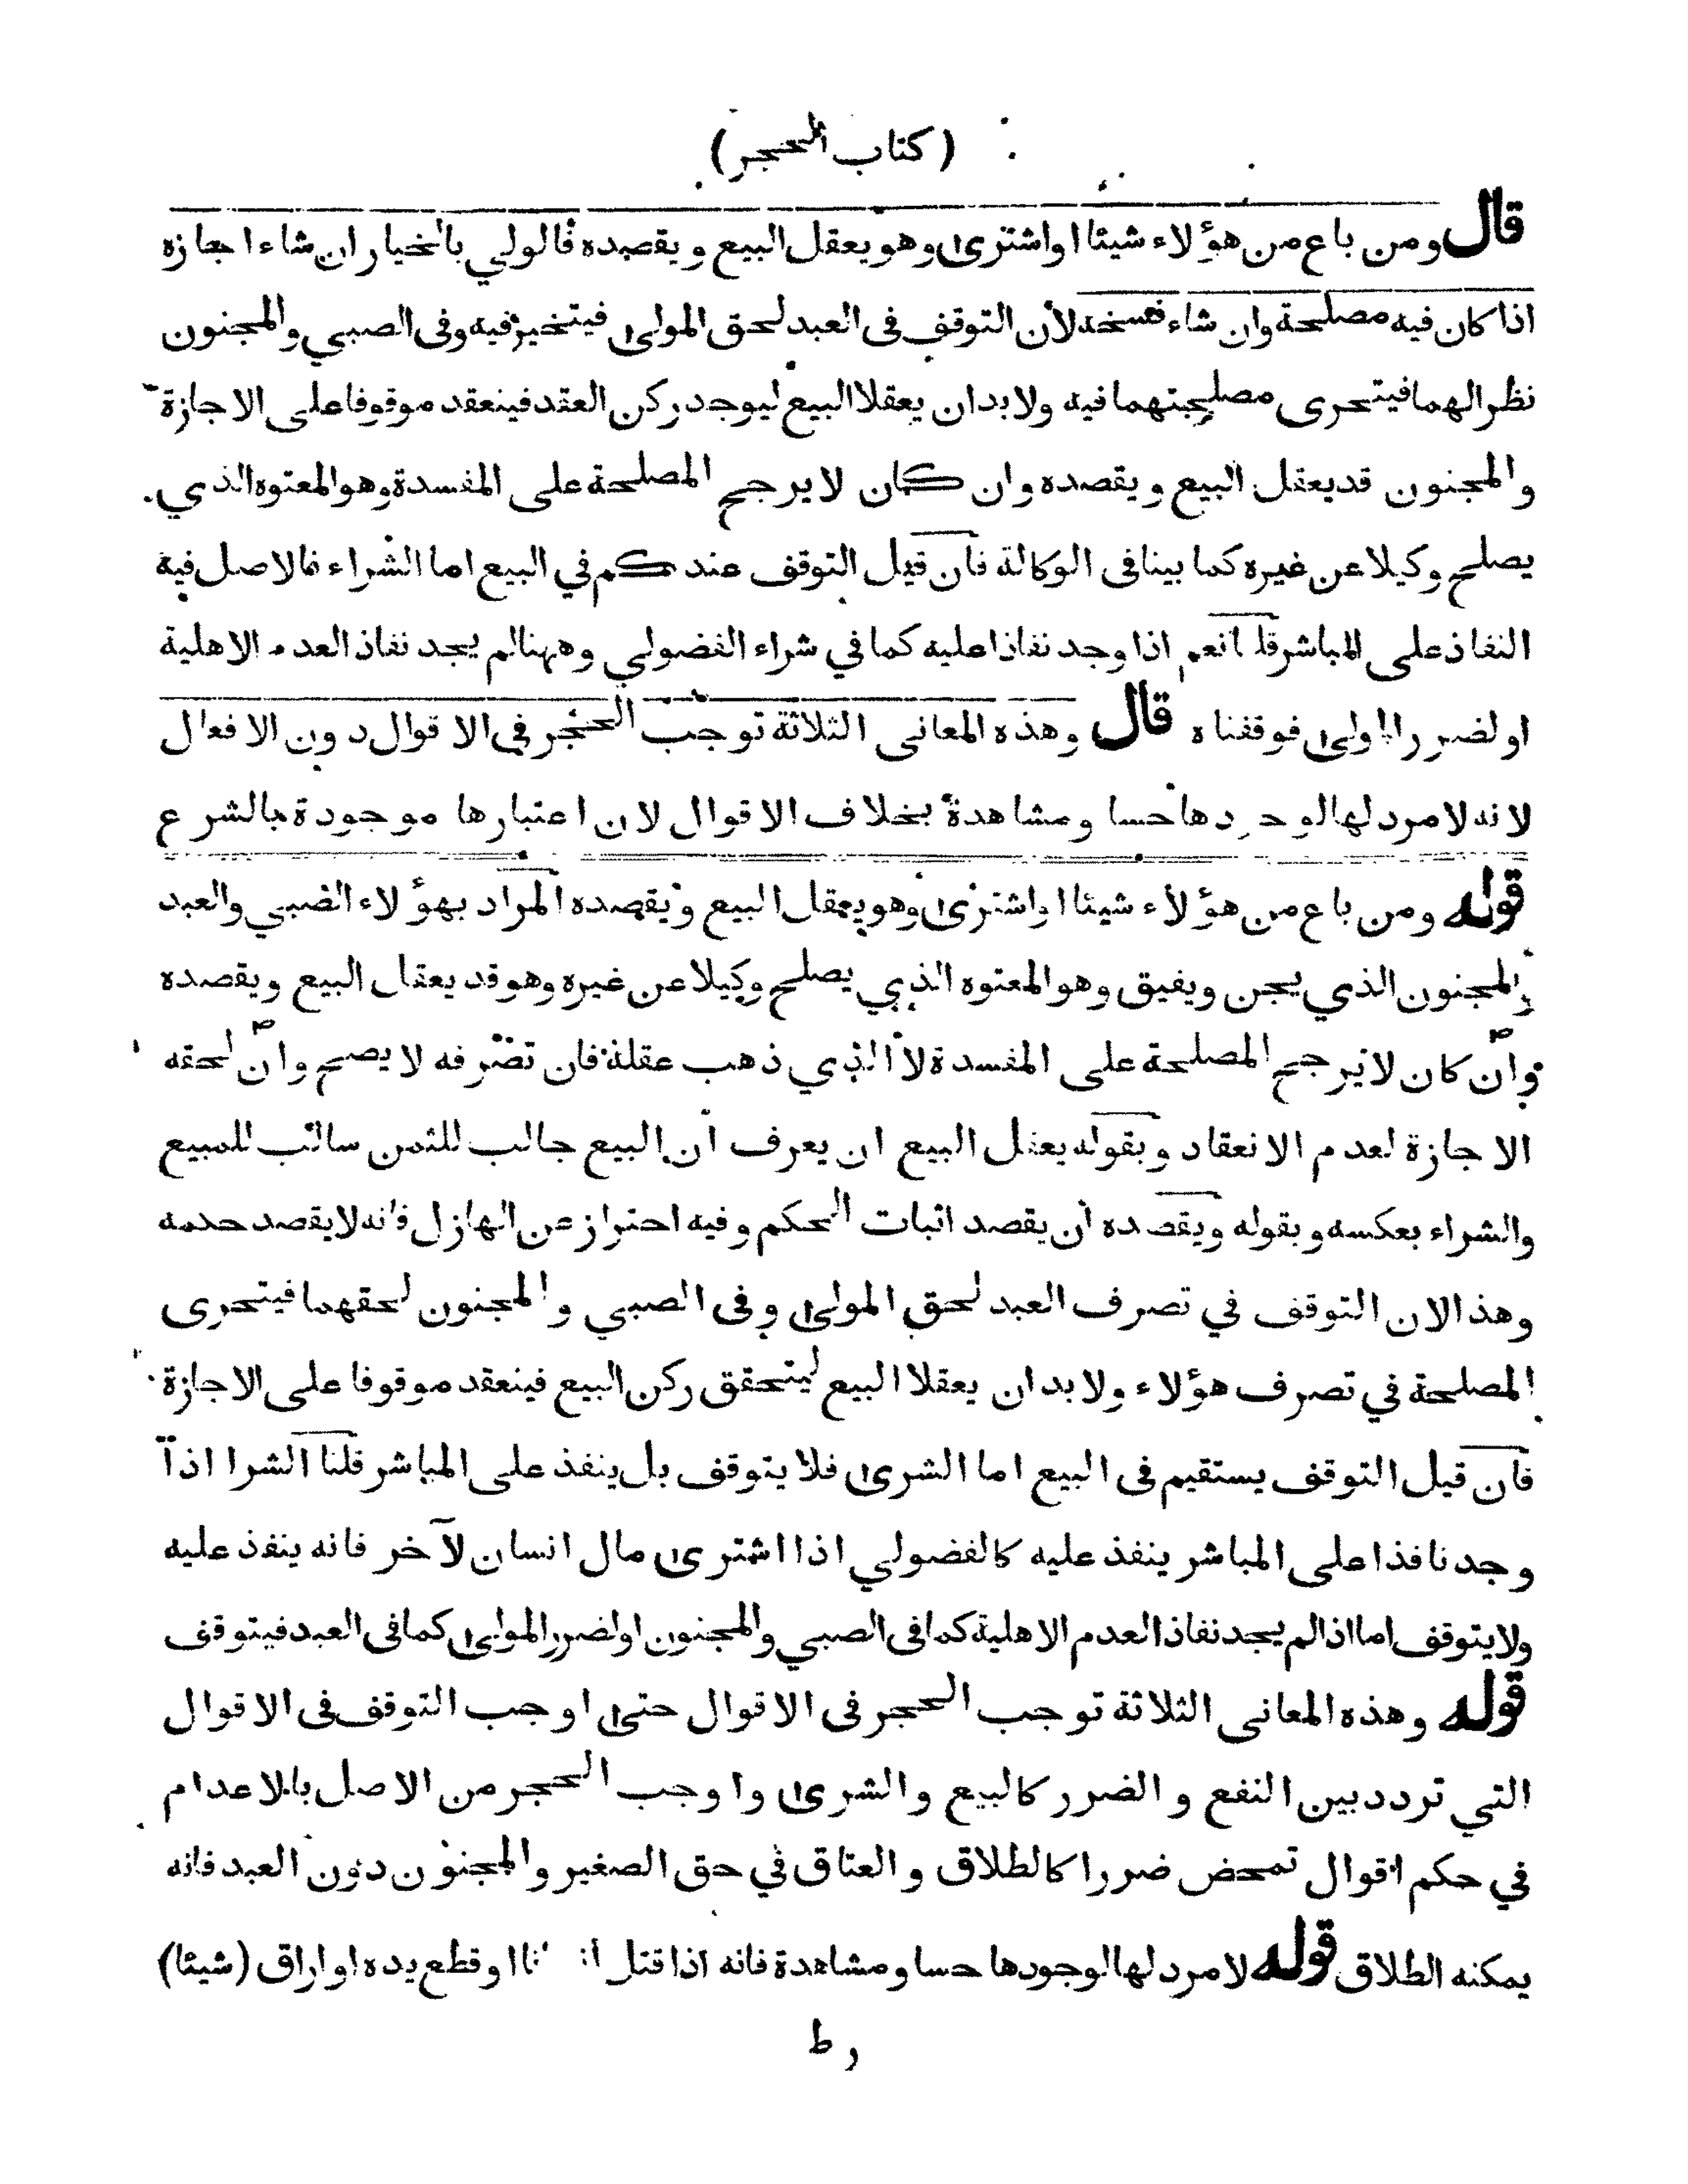 ( كتاب الحجر )
قال ومن باع من هؤلاء شيئا او اشترى وهو يعقل البيع ويقصده فالولي بالخيار ان شاء اجازه
اذا كان فيه مصلحة وان شاء فسخه لأن التوقف فى العبد لحق المولى فيتخير فيه وفى الصبي والمجنون
نظر الهما فيتحرى مصلحتهما فيه ولابد ان يعقلا البيع ليوجد ركن العقد فينعقد موقوفا على الاجازة
والمجنون قد يعقل البيع ويقصده وان كان لا يرجح المصلحة على المفسدة وهو المعتوه الذي
يصلح وكيلا عن غيره كما بينا فى الوكالة فان قيل التوقف عندكم في البيع اما الشراء فالاصل فيه
النفاذ على المباشر قلنا نعم اذا وجد نفاذا عليه كما في شراء الفضولي وههنا لم يجد نفاذ العدم الاهلية
او لضرر المولى فوقفناه قال وهذه المعاني الثلاثة توجب الحجر في الاقوال دون الافعال
لانه لا مرد لها لوجودها حسا ومشاهدة بخلاف الاقوال لان اعتبارها موجودة بالشرع
قوله ومن باع من هؤلاء شيئا او اشترى وهو يعقل البيع ويقصده المراد بهؤلاء الصبي والعبد
والمجنون الذي يجن ويفيق وهو المعتوه الذي يصلح وكيلا عن غيره وهو قد يعقل البيع ويقصده
وان كان لا يرجح المصلحة على المفسدة لا الذي ذهب عقله فان تصرفه لا يصح وان لحقه
الاجازة لعدم الانعقاد وبقوله يعقل البيع ان يعرف ان البيع جالب للثمن سالب للمبيع
والشراء بعكسه وبقوله ويقصده أن يقصد اثبات الحكم وفيه احتراز عن الهازل فانه لا يقصد حكمه
وهذا لان التوقف في تصرف العبد لحق المولى وفى الصبي والمجنون لحقهما فيتحرى
المصلحة في تصرف هؤلاء ولابد ان يعقلا البيع ليتحقق ركن البيع فينعقد موقوفا على الاجازة
فان قيل التوقف يستقيم فى البيع اما الشرى فلا يتوقف بل ينفذ على المباشر قلنا الشرا اذا
وجد نافذا على المباشر ينفذ عليه كالفضولي اذا اشترى مال انسان لآخر فانه ينفذ عليه
ولا يتوقف اما اذا لم يجد نفاذا لعدم الاهلية كما فى الصبي والمجنون او لضرر المولى كما فى العبد فيتوقف
قوله وهذه المعاني الثلاثة توجب الحجر فى الاقوال حتى اوجب التوقف فى الاقوال
التي تردد بين النفع والضرر كالبيع والشرى واوجب الحجر من الاصل بالاعدام
في حكم اقوال تمحض ضررا كالطلاق والعتاق في حق الصغير والمجنون دون العبد فانه
يمكنه الطلاق قوله لا مرد لها لوجودها حسا ومشاهدة فانه اذا قتل او قطع يده او اراق (شيئا)